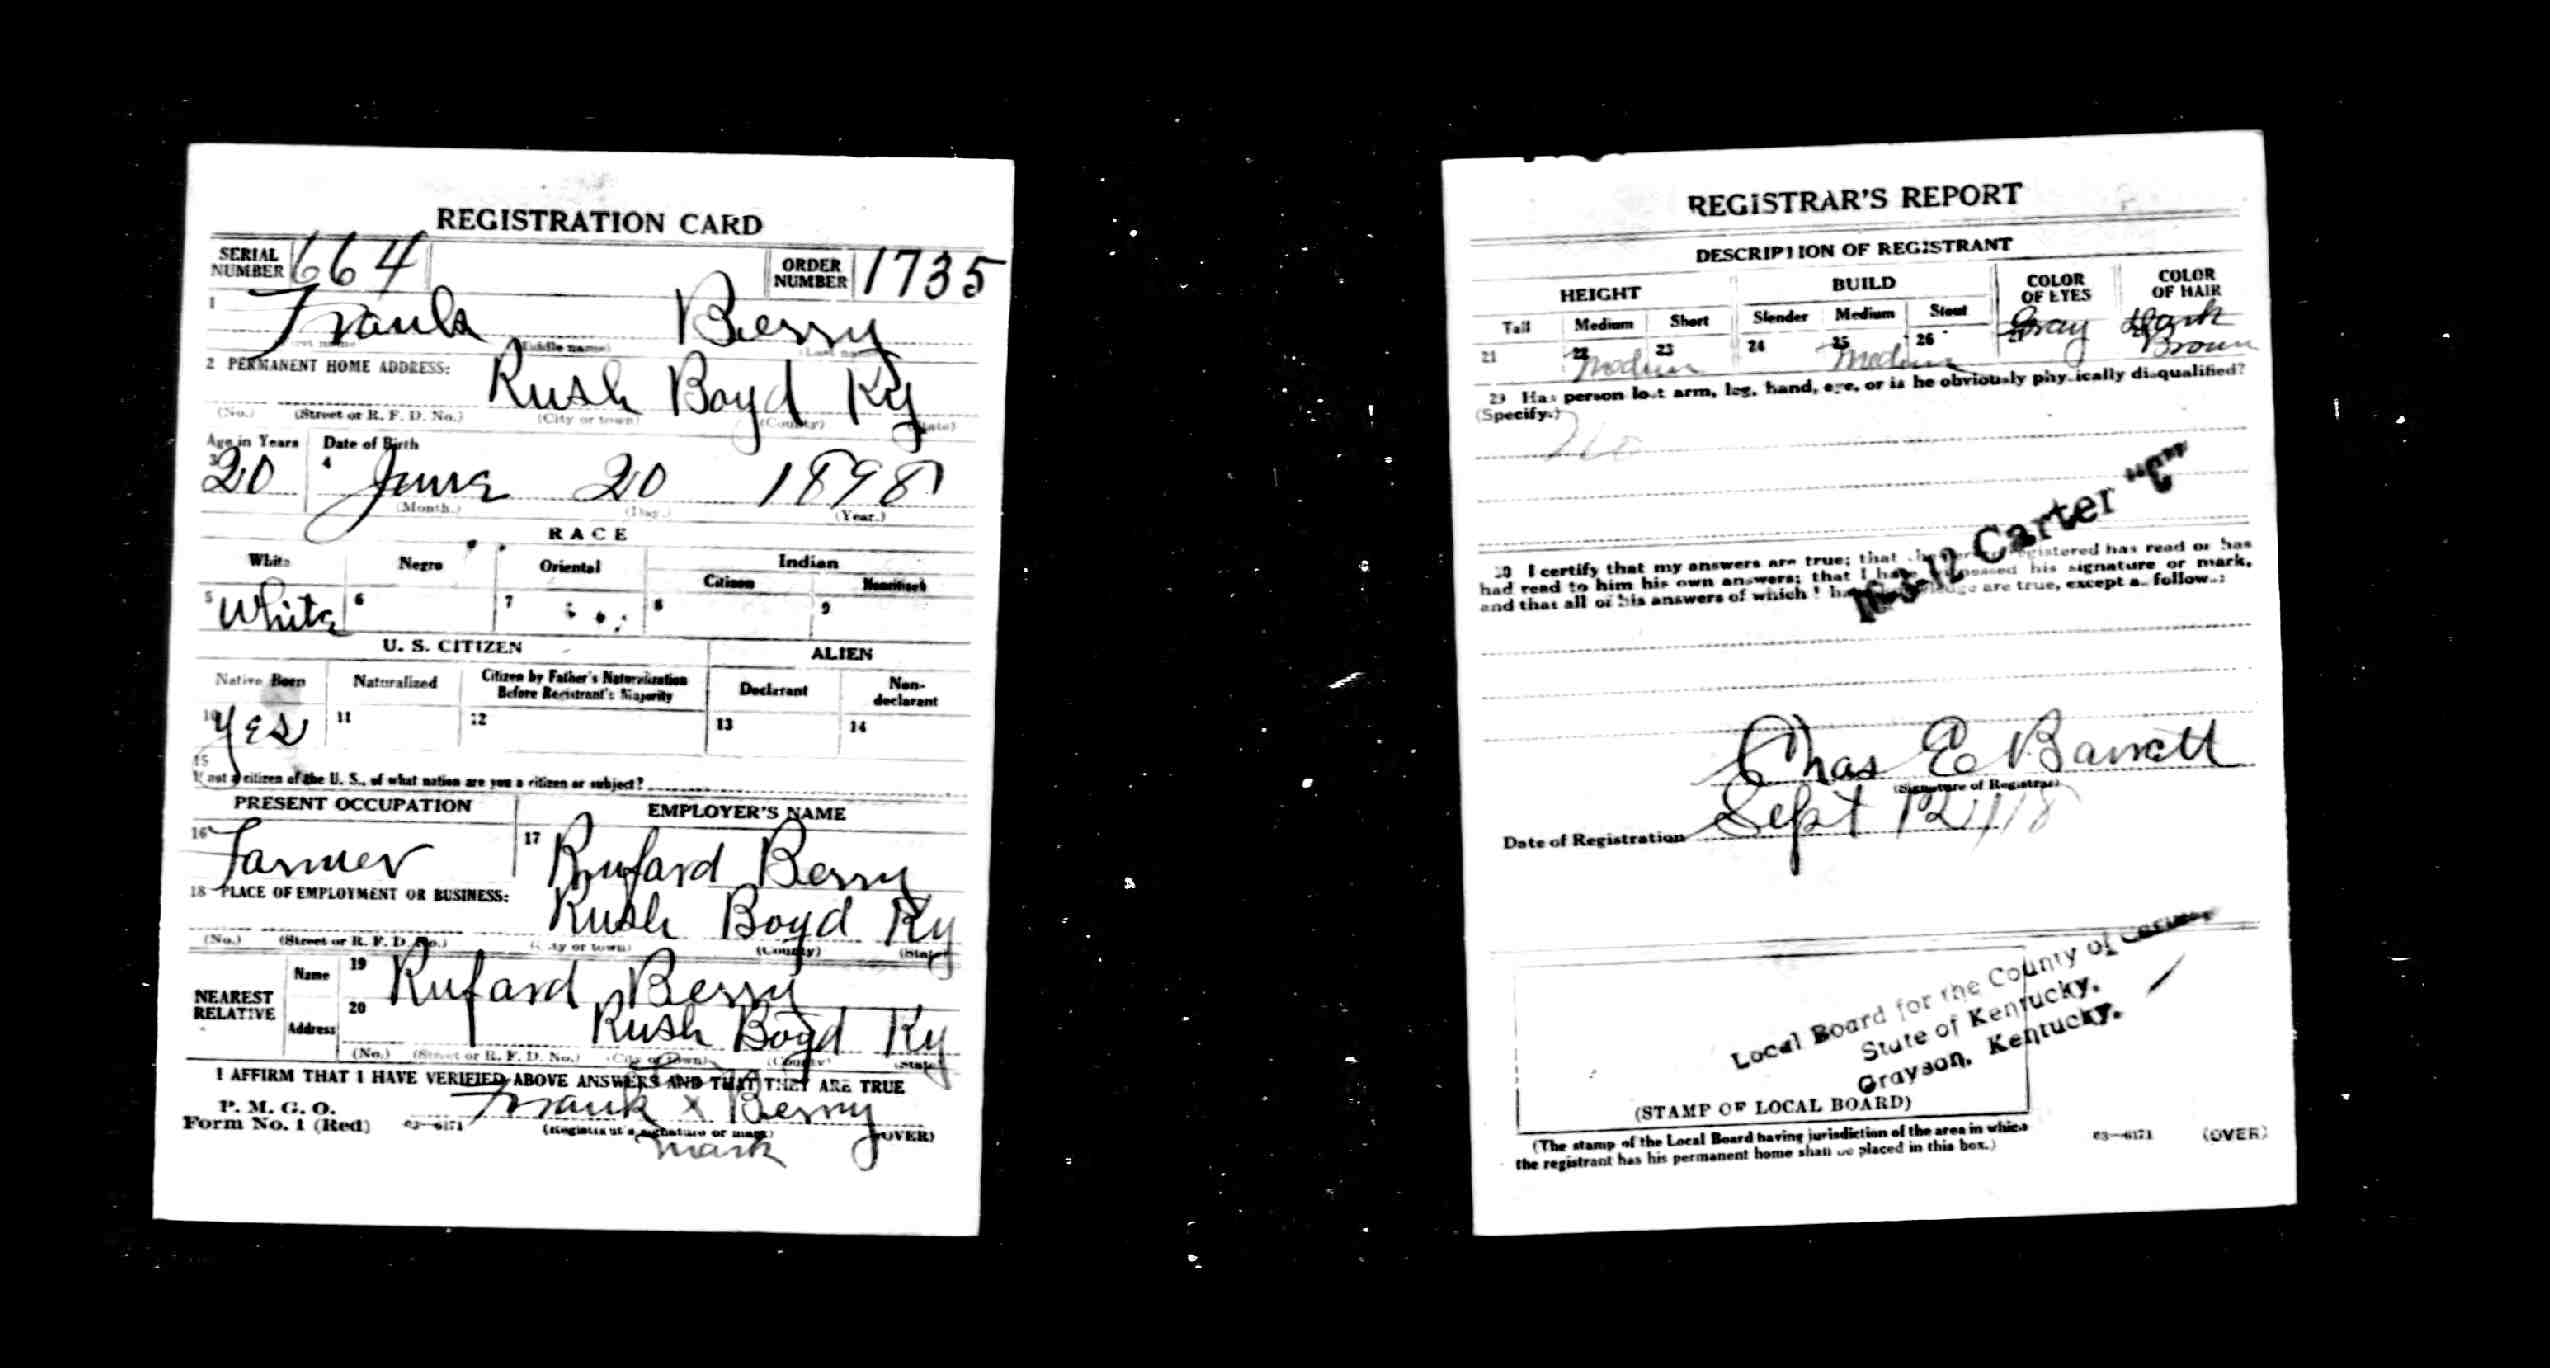 REGISTRATION CARD
SERIAL NUMBER 664 ORDER NUMBER 1735
1 Frank Berry
(Middle name)
2 PERMANENT HOME ADDRESS: Rush Boyd Ky
(No.) (Street or R. F. D. No.) (City or town) (County) (State)
Age in Years Date of Birth
3 20 4 June 20 1898
(Month.) (Day.) (Year.)
RACE
White Negro Oriental Indian
Citizen Noncitizen
5 White 6 7 8 9
U. S. CITIZEN ALIEN
Native Born Naturalized Citizen by Father's Naturalization Before Registrant's Majority Declarant Non-declarant
10 Yes 11 12 13 14
15
If not a citizen of the U. S., of what nation are you a citizen or subject?
PRESENT OCCUPATION EMPLOYER'S NAME
16 Farmer 17 Rufard Berry
18 PLACE OF EMPLOYMENT OR BUSINESS: Rush Boyd Ky
(No.) (Street or R. F. D. No.) (City or town) (County) (State)
NEAREST RELATIVE Name 19 Rufard Berry
Address 20 Rush Boyd Ky
(No.) (Street or R. F. D. No.) (City or town) (County) (State)
I AFFIRM THAT I HAVE VERIFIED ABOVE ANSWERS AND THAT THEY ARE TRUE
P. M. G. O.
Form No. 1 (Red) 03—6171 Frank X Berry
(Registrant's signature or mark) (OVER)
mark
REGISTRAR'S REPORT
DESCRIPTION OF REGISTRANT
HEIGHT BUILD COLOR OF EYES COLOR OF HAIR
Tall Medium Short Slender Medium Stout Gray Dark Brown
21 22 Medium 23 24 25 Medium 26 27
29 Has person lost arm, leg, hand, eye, or is he obviously physically disqualified?
(Specify.) No
16-3-12 Carter "C"
30 I certify that my answers are true; that the person registered has read or has
had read to him his own answers; that I have witnessed his signature or mark,
and that all of his answers of which I have knowledge are true, except as follows:
Chas E Barrett
(Signature of Registrar)
Date of Registration Sept 12/18
Local Board for the County of Carter,
State of Kentucky.
Grayson, Kentucky.
(STAMP OF LOCAL BOARD)
(The stamp of the Local Board having jurisdiction of the area in which
the registrant has his permanent home shall be placed in this box.)
03—6171 (OVER)